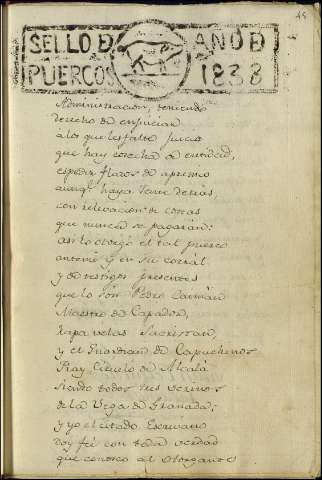 45
SELLO D AÑO D
PUERCOS 1838
Administracion, teniendo
derecho de enjuiciar
à los que les falte juicio
que hay cosecha de entidad,
espedir plazos de apremio
aunq.e haya de tras,
con relevacion de costas
que nunca se pagarán:
asi lo otorgó el tal puerco
antemi y en su corral
y de testigos presentes
que lo son Pedro Carman
Maestro de Capador,
Rapavelas Sacristan,
y el Guardian de Capuchinos
Fray Cirilo de Alcalá
siendo todos tres vecinos
de la Vega de Granada;
y yo el citado Escribano
doy fé con toda verdad
que conosco al otorgante